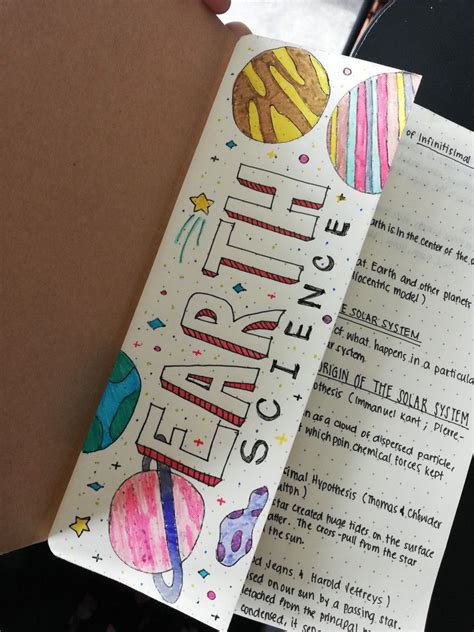 EARTH
SCIENCE
of Infinitisimal
arth is in the center of the
at. Earth and other planets
locentric model)
E SOLAR SYSTEM
of what happens in a particula
ar system.
ORIGIN OF THE SOLAR SYSTEM
pothesis (Immanuel Kant ; Pierre-
an as a cloud of dispersed particle,
t which poin chemical forces kept
simal Hypothesis (Thomas &
lton)
star created huge tides on the surface
atter. The cross-pull from the star
the sun.
d Jeans & Harold Jeffreys)
sed on our sun by a passing star.
detached from the principal
condensed, it